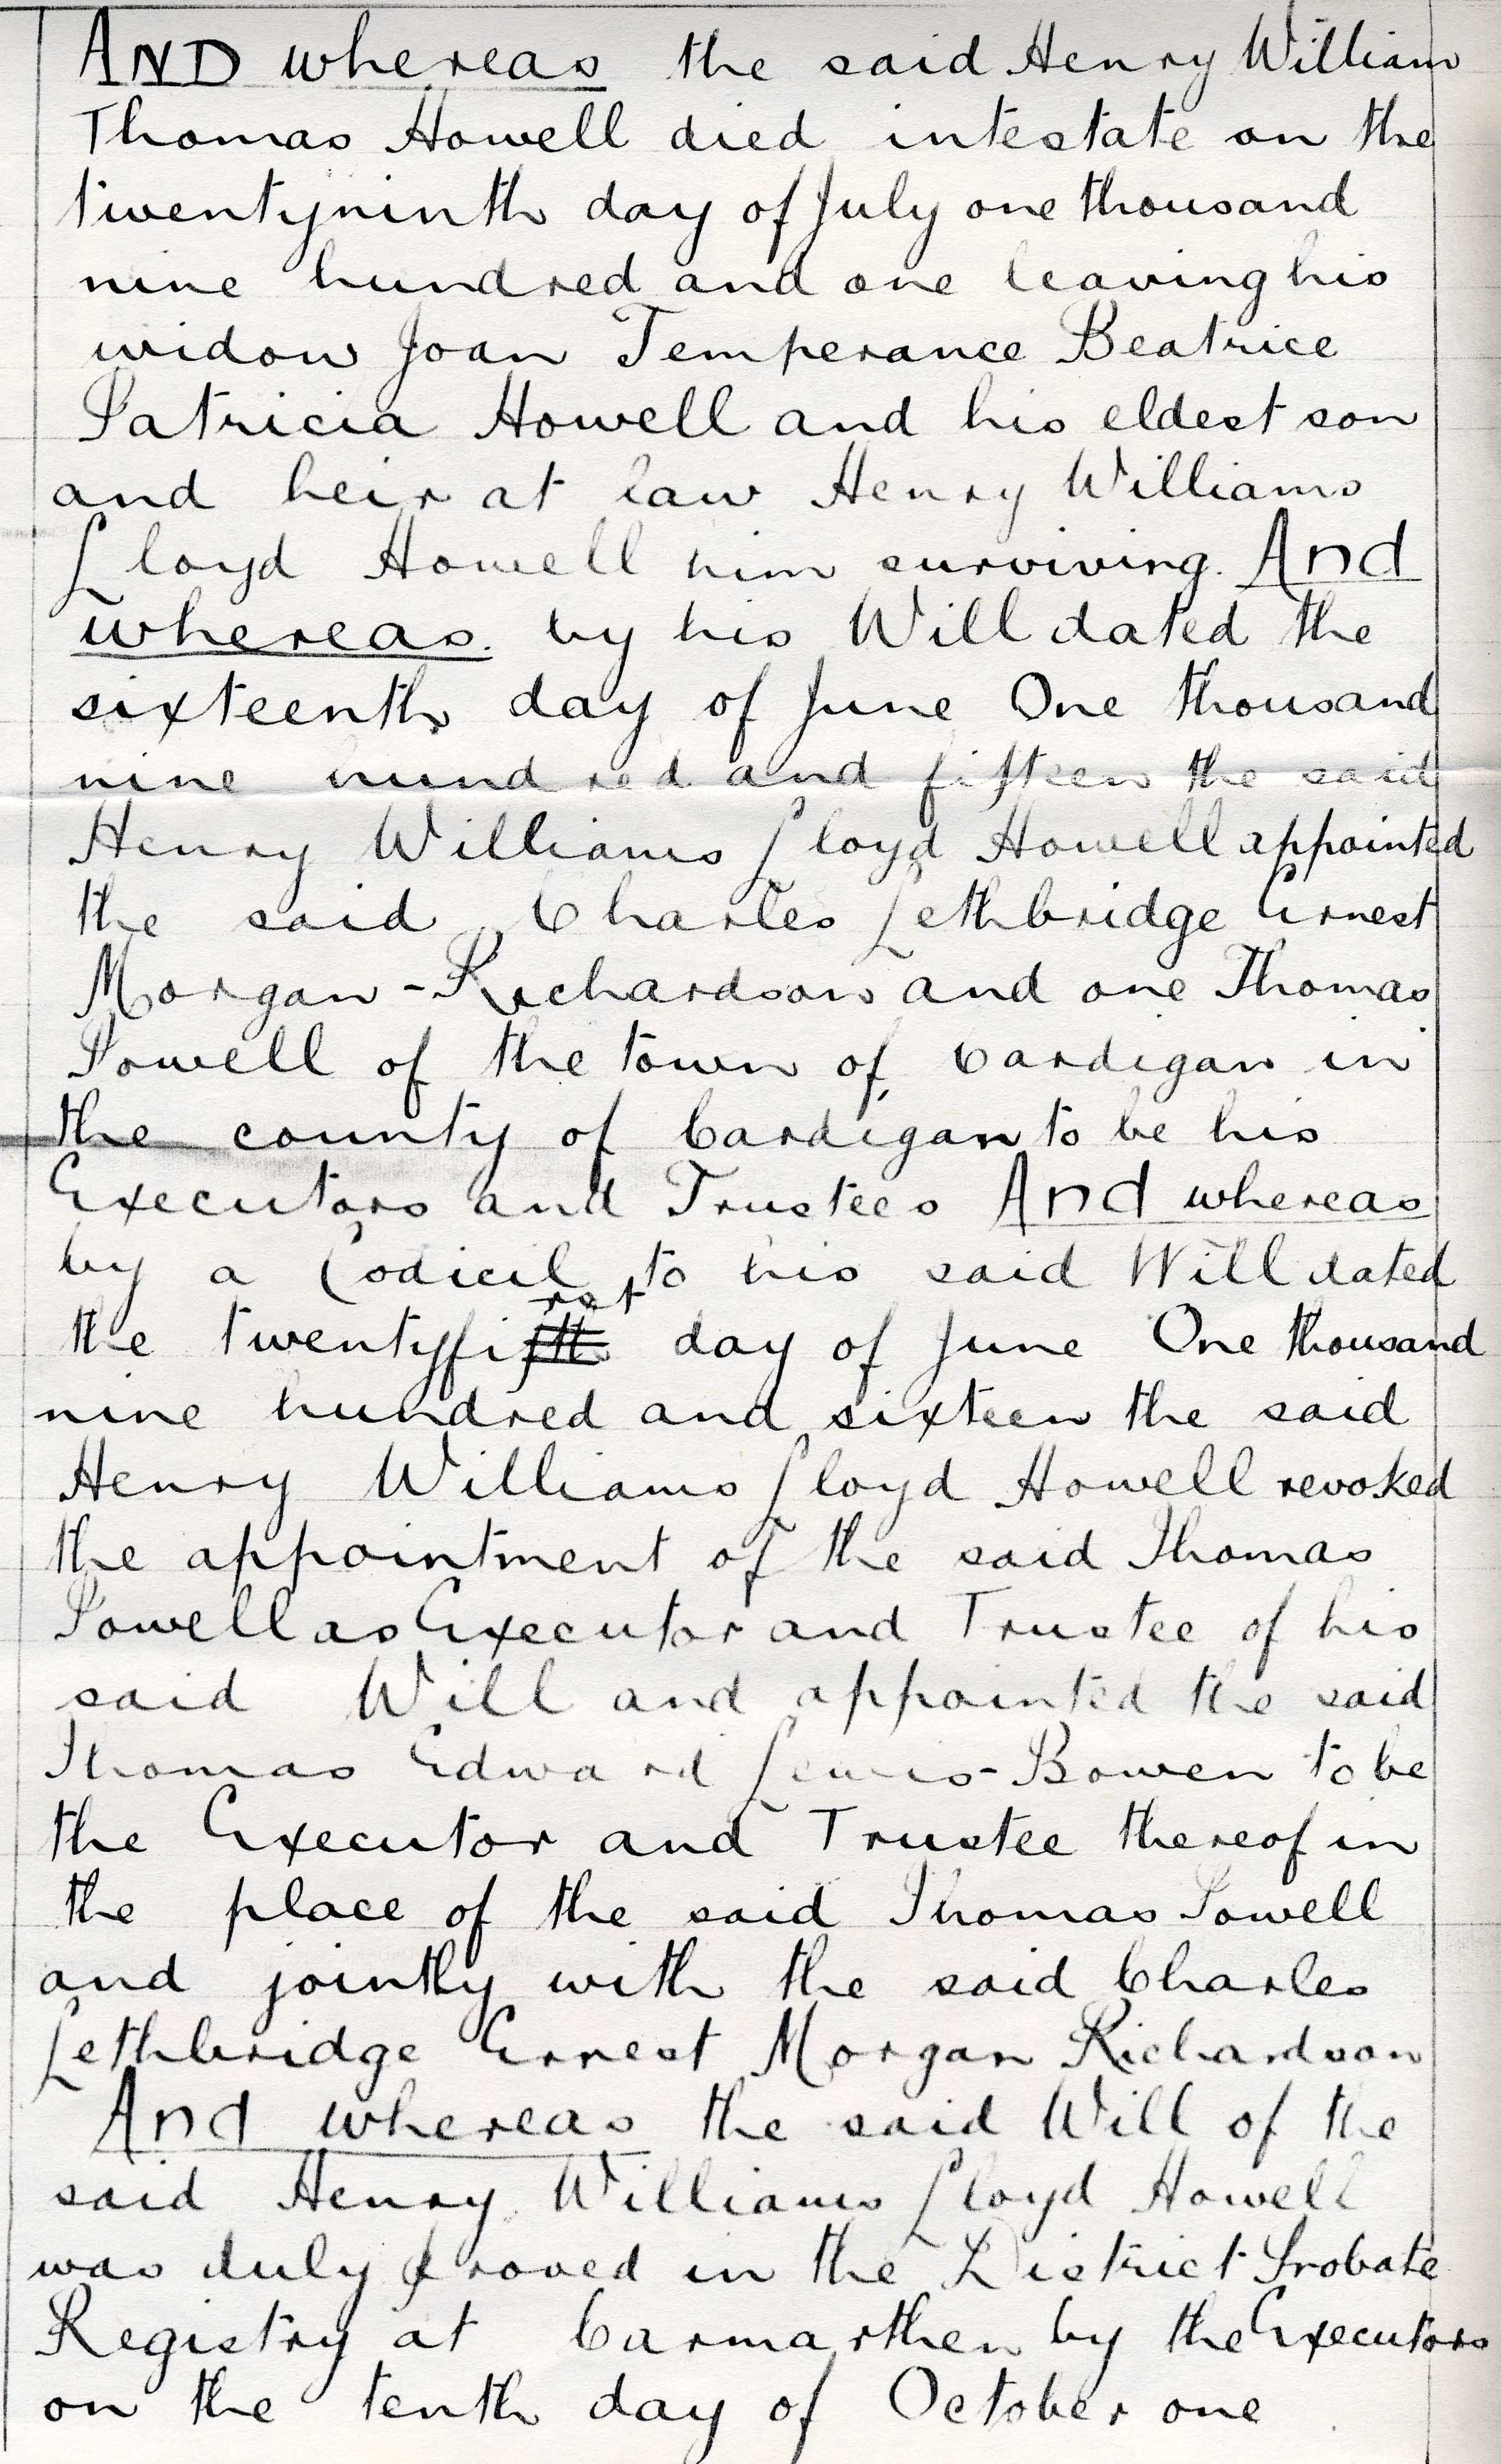 AND whereas the said Henry William
Thomas Howell died intestate on the
twentyninth day of July one thousand
nine hundred and one leaving his
widow Joan Temperance Beatrice
Patricia Howell and his eldest son
and heir at law Henry Williams
Lloyd Howell him surviving. And
whereas. by his Will dated the
sixteenth day of June One thousand
nine hundred and fifteen the said
Henry Williams Lloyd Howell appointed
the said Charles Lethbridge Ernest
Morgan-Richardson and one Thomas
Powell of the town of Cardigan in
the county of Cardigan to be his
Executors and Trustees And whereas
by a Codicil to his said Will dated
the twentyfirst day of June One thousand
nine hundred and sixteen the said
Henry Williams Lloyd Howell revoked
the appointment of the said Thomas
Powell as Executor and Trustee of his
said Will and appointed the said
Thomas Edward Lewis-Bowen to be
the Executor and Trustee thereof in
the place of the said Thomas Powell
and jointly with the said Charles
Lethbridge Ernest Morgan Richardson
And whereas the said Will of the
said Henry Williams Lloyd Howell
was duly proved in the District Probate
Registry at Carmarthen by the Executors
on the tenth day of October one